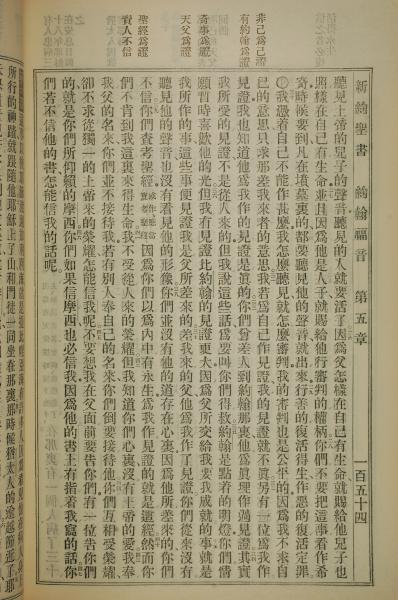 新約聖書 約翰福音 第五章 一百五十四
聽見上帝的兒子的聲音聽見的人就要活了因爲父怎樣在自己有生命就賜給他兒子也
照樣在自己有生命並且因爲他是人子就賜給他行審判的權柄你們不要把這事看作希
奇時候要到凡在墳墓裏的都要聽見他的聲音就出來行善的復活得生作惡的復活定罪
我憑着自己不能作甚麼我怎麼聽見就怎麼審判我的審判也是公平的因爲我不求自
己的意思只求那差我來者的意思我若爲自己作見證我的見證就不眞另有一位爲我作
見證我也知道他爲我作的見證是眞的你們曾差人到約翰那裏他爲眞理作過見證其實
我所受的見證不是從人來的但我說這些話爲要叫你們得救約翰是點着的明燈你們情
願暫時喜歡他的光但我有見證比約翰的見證更大因爲父所交給我要我成就的事就是
我所作的事這些事便見證我是父所差來的差我來的父他爲我作了見證你們從來沒有
聽見他的聲音也沒有看見他的形像你們並沒有他的道存在心裏因爲他所差來的你們
不信你們查考聖經 因爲你們以爲內中有永生爲我作見證的就是這經然而你
們不肯到我這裏來得生命我不受從人來的榮耀但我知道你們心裏沒有上帝的愛我奉
我父的名來你們並不接待我若有別人奉自己的名來你們倒要接待他你們互相受榮耀
卻不求從獨一的上帝來的榮耀怎能信我呢不要想我在父面前要告你們有一位告你們
的就是你們所仰賴的摩西你們如果信摩西也必信我因爲他的書上有指着我寫的話你
們若不信他的書怎能信我的話呢
非己爲己證
有約翰爲證
奇事爲證
天父爲證
聖經爲證
責人不信